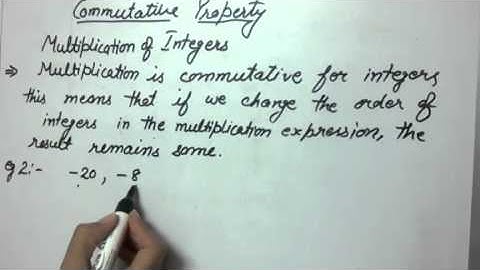 Commutative Property
Multiplication of Integers
⇒ Multiplication is commutative for integers,
this means that if we change the order of
integers in the multiplication expression, the
result remains same.
eg 2:- -20, -8